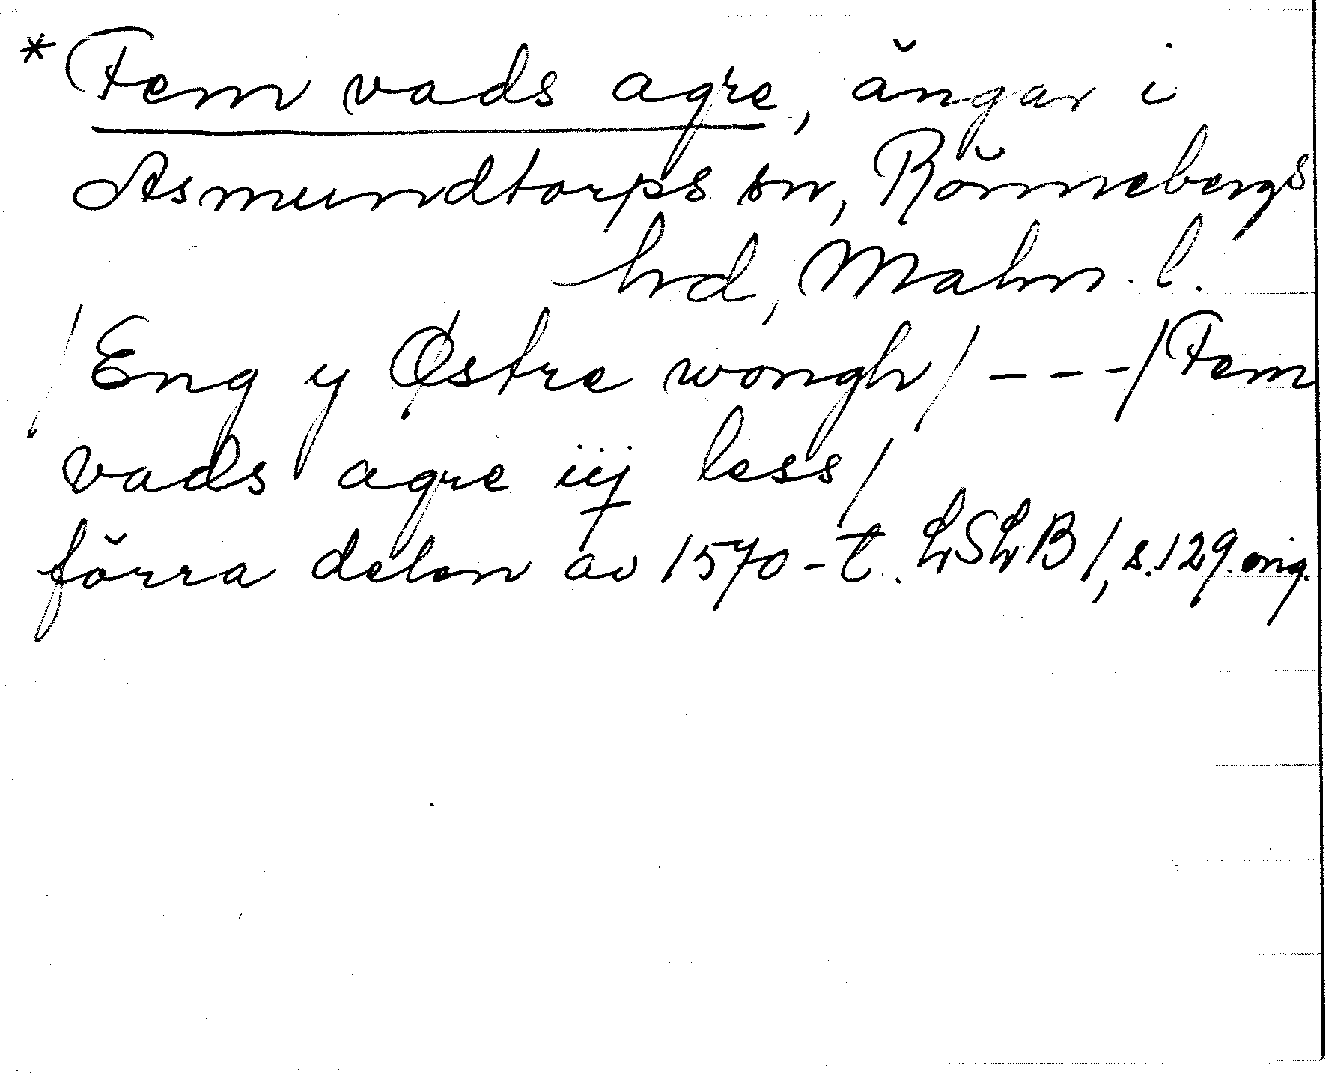 * Fem vads agre, ängar i
Asmundtorps sn, Rönnebergs
hd, Malm. l.
/Eng y Østre wongh/ - - - /Fem
vads agre iij less/
förra delen av 1570-t. LSLB 1, s. 129. orig.